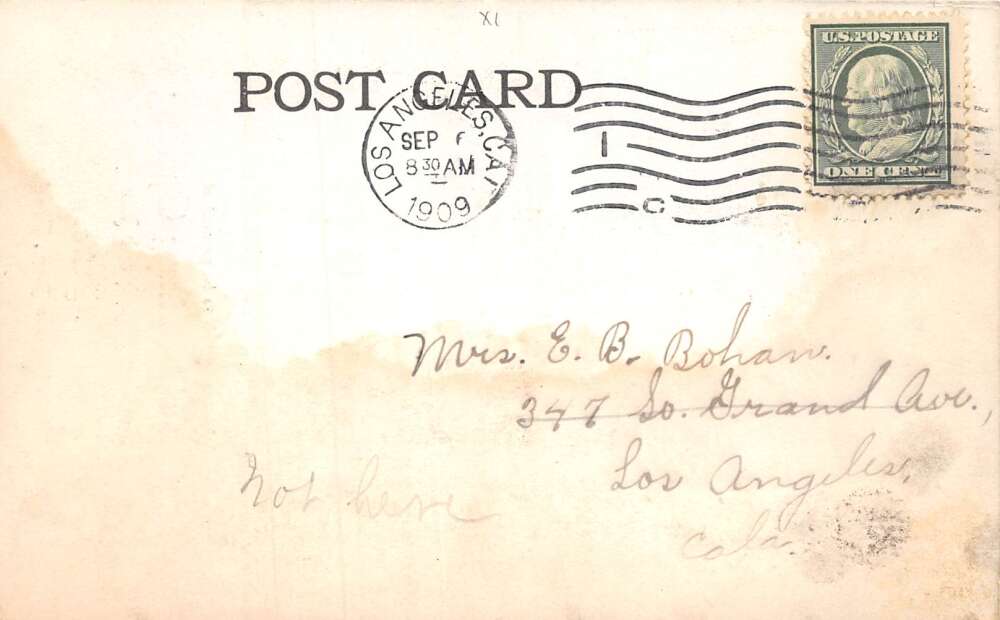 XI
POST CARD
LOS ANGELES, CAL
SEP 6
8 30 AM
1909
1
C
U.S. POSTAGE
ONE CENT
Mrs. E. B. Bohan.
347 So. Grand Ave.,
Los Angeles,
Cala.
Not here